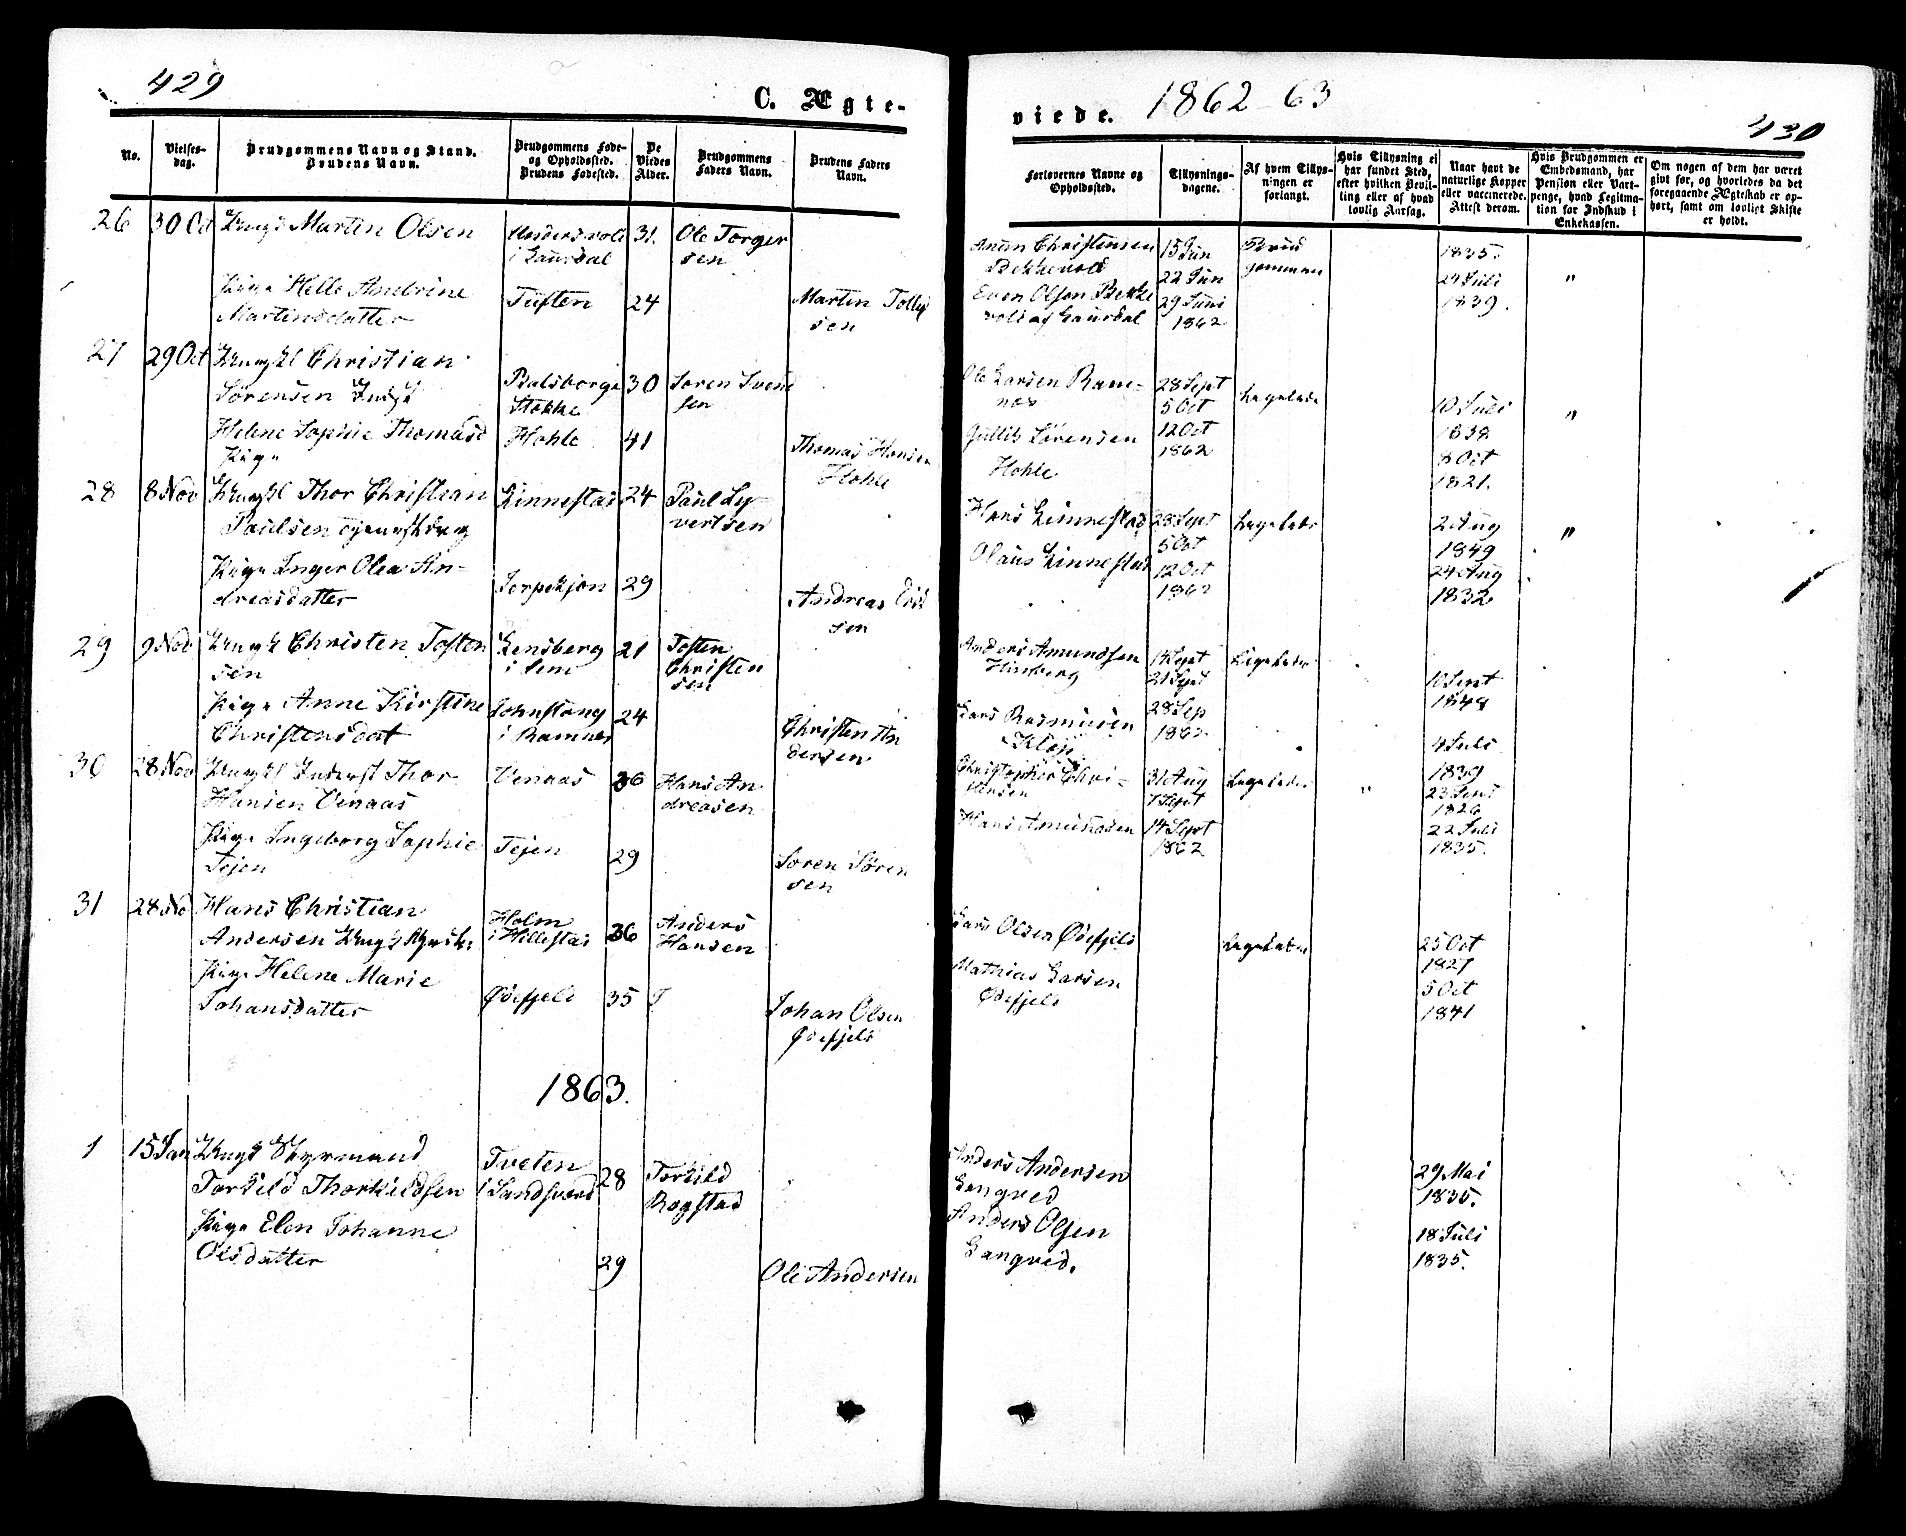 429
C. Ægte-
No.
Vielses-
dag.
Brudgommens Navn og Stand.
Brudens Navn.
Brudgommens Føde-
og Opholdssted.
Brudens Fødested.
De
Viedes
Alder.
Brudgommens
Faders Navn.
Brudens Faders
Navn.
26
30 Oct
Martin Olsen
i Laurdal
31.
Ole Torger
sen
Pige Helle Andrine
Martinsdatter
Tuften
24
Martin Tollef
sen
27
29 Oct
Ungkl Christian
Sörensen Inds
Stokke
30
Sören Svend
sen
Helene Sophie Thomasd
Pige
Hohle
41
Thomas Hansen
Hohle
28
8 Nov
Ungkl Thor Christian
Paulsen
Linnestad
24
Paul Sy-
vertsen
Pige Inger Olea An-
dreasdatter
29
Andreas
sen
29
9 Nov
Ungkl Christen Tosten
sen
i Sem
21
Tosten
Christen
sen
Pige Anne Kirstine
Christensdat
i Ramnes
24
Christen An
dersen
30
28 Nov
Ungkl Inderst Thor
Hansen Venaas
Venaas
36
Hans An
dreasen
Pige Ingeborg Sophie
Tejen
Tejen
29
Sören Sören
sen
31
28 No
Hans Christian
Andersen Ungk
Holm
i Hillestad
36
Anders
Hansen
Pige Helene Marie
Johansdatter
Ödefjeld
35
Johan Olsen
Ödefjeld
1863.
1
15 Jan
Ungk Styrmand
Torkild Thorkildsen
Tveten
i Sandsværd
28
Torkild
Rogstad
Pige Elen Johanne
Olsdatter
29
Ole Andersen
viede.
1862-63
430
Forlovernes Navne og
Opholdssted.
Tillysnings-
dagene.
Af hvem Tillys-
ningen er
forlangt.
Hvis Tillysning ei
har fundet Sted,
efter hvilken Bevil-
ling eller af hvad
lovlig Aarsag.
Naar havt de
naturlige Kopper
eller vaccinerede.
Attest derom.
Hvis Brudgommen er
Embedsmand, har
Pension eller Vart-
penge, hvad Legitima-
tion for Indskud i
Enkekassen.
Om nogen af dem har været
givt før, og hvorledes da det
foregaaende Ægteskab er op-
hørt, samt om lovligt Skifte
er holdt.
Christensen
Bekkevold
Even Olsen Bekke
vold af Laurdal
15 Jun
22 Jun
29 Juni
1862
Brud
gommen
1835.
29 Juli
1839.
"
Ole Larsen Ram-
nes
Gullik Sörensen
Hohle
28 Sept
5 Oct
12 Oct
1862
Ligeledes
10 Juli
1832
8 Oct
1821.
"
Hans Linnestad
Olaus Linnestad
28 Sept
5 Oct
12 Oct
1862
Ligeledes
2 Aug
1849
24 Aug
1832
"
Anders Amundsen
Himberg
Lars Rasmusen
14 Sept
21 Sept
28 Sep
1862
Ligeledes
10 Sept
1848
4 Juli
1839
Christopher Chri-
stensen
Hans Amundsen
31 Aug
7 Sept
14 Sept
1862
Ligeledes
"
23 Juni
1826
22 Juli
1835.
Lars Olsen Ödefjeld
Mathias Larsen
Ödefjeld
Ligeledes
25 Oct
1827
5 Oct
1841
Anders Andersen
Langved
Anders Olsen
Langved.
29 Mai
1835.
18 Juli
1835.